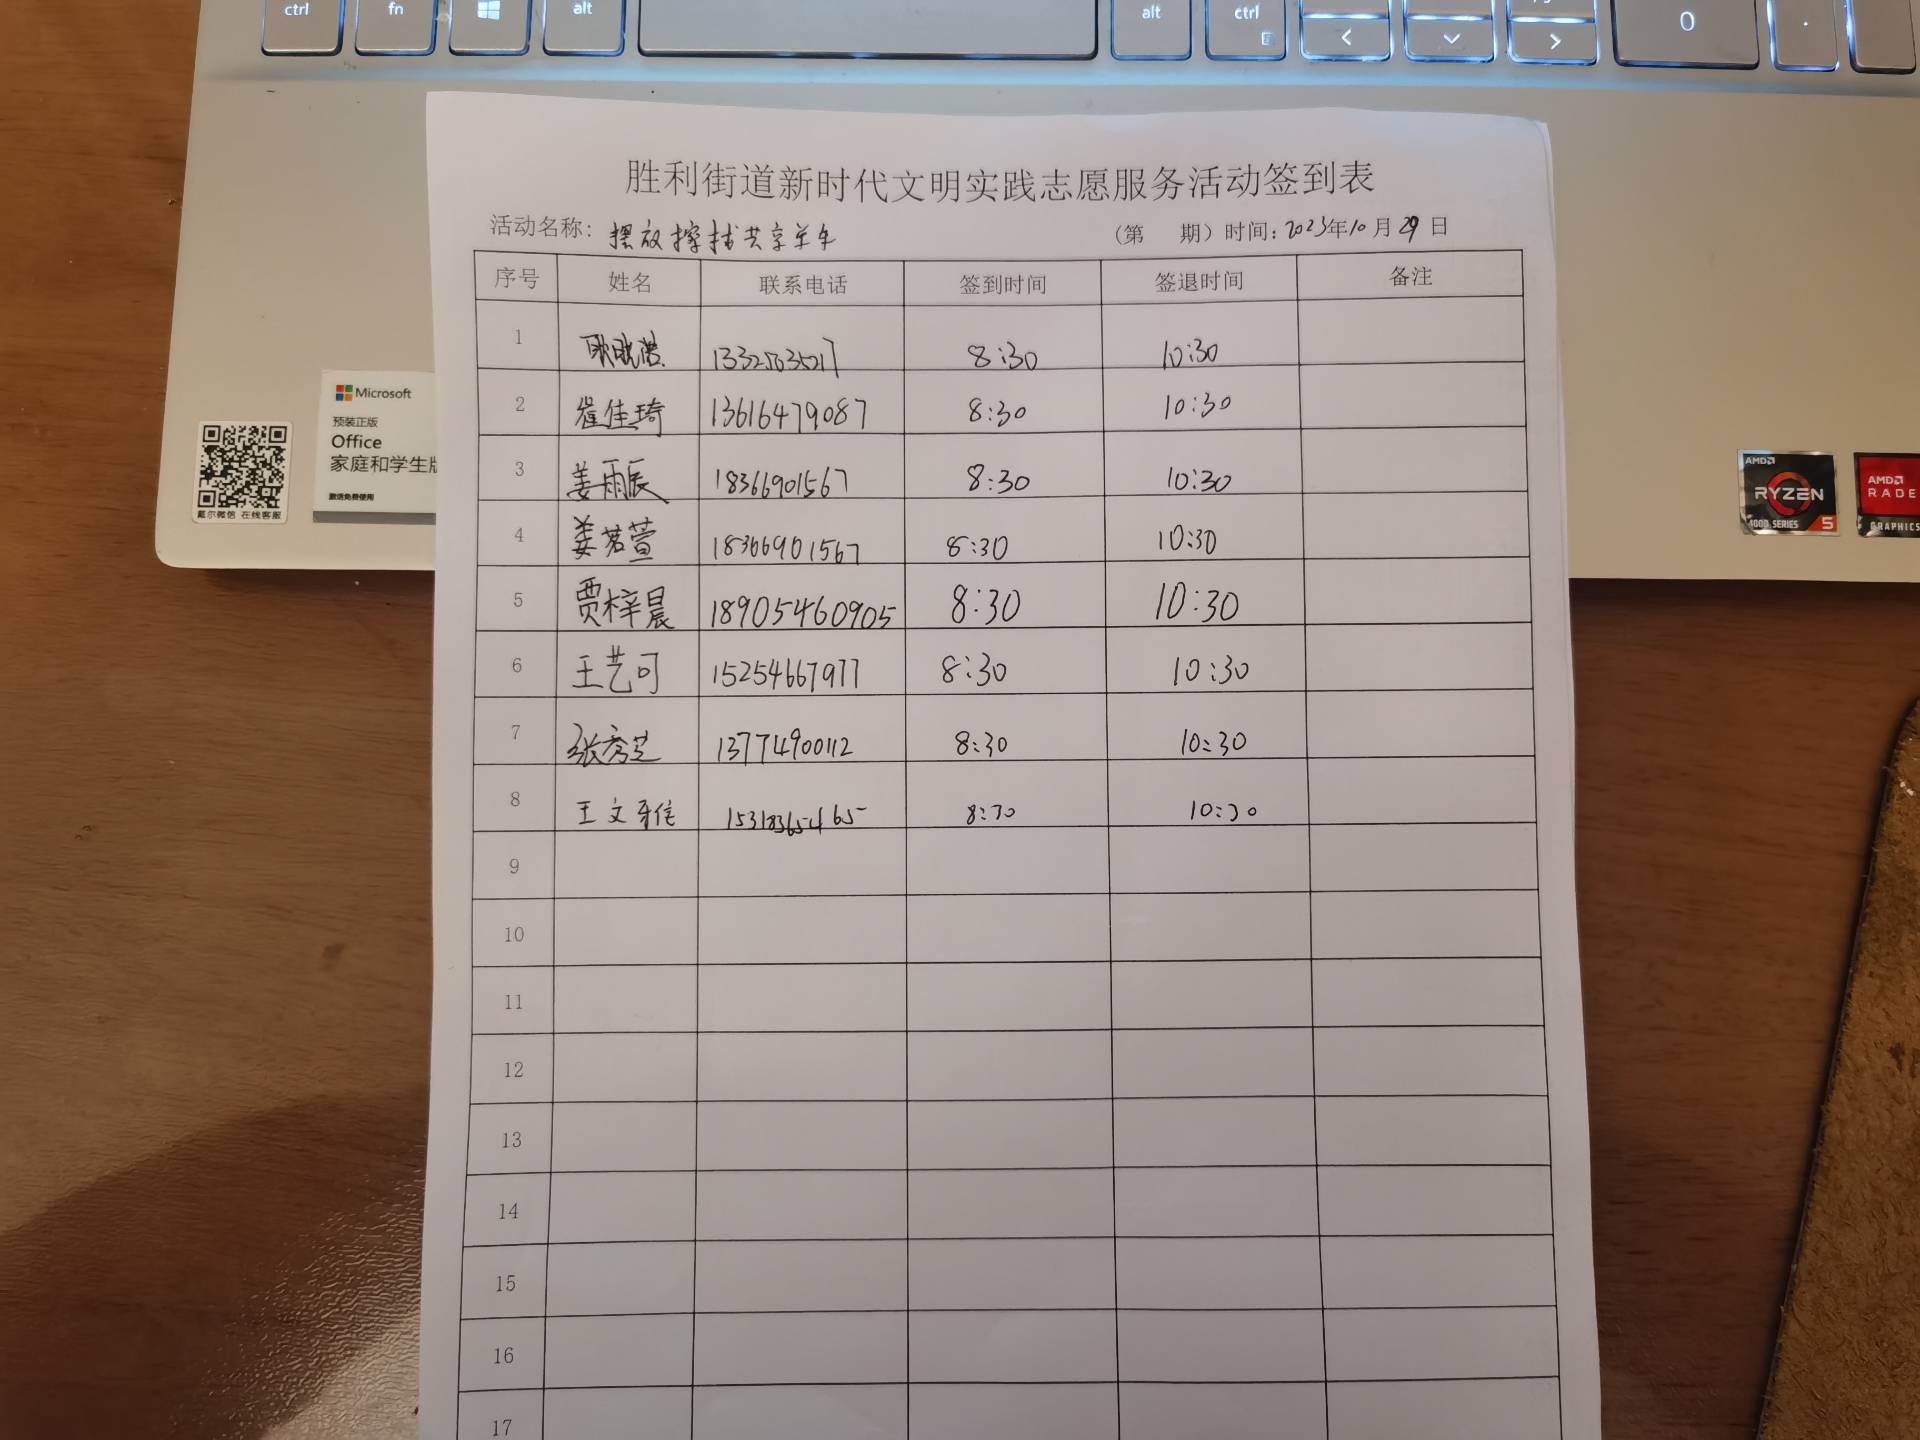 ctrl fn alt alt ctrl < > 0 .
胜利街道新时代文明实践志愿服务活动签到表
活动名称: 摆放擦拭共享单车 (第 期) 时间: 2023年10月29日
序号 姓名 联系电话 签到时间 签退时间 备注
1 8:30 10:30
2 崔佳琦 13616479087 8:30 10:30
3 姜雨辰 18366901567 8:30 10:30
4 姜茗萱 18366901567 8:30 10:30
5 贾梓晨 18905460905 8:30 10:30
6 王艺可 15254667977 8:30 10:30
7 张秀芝 13774900112 8:30 10:30
8 王文 8:30 10:30
9
10
11
12
13
14
15
16
17
Microsoft
预装正版
Office
家庭和学生版
激活免费使用
戴尔微信 在线客服
AMD
RYZEN
4000 SERIES 5
AMD
RADE
GRAPHICS